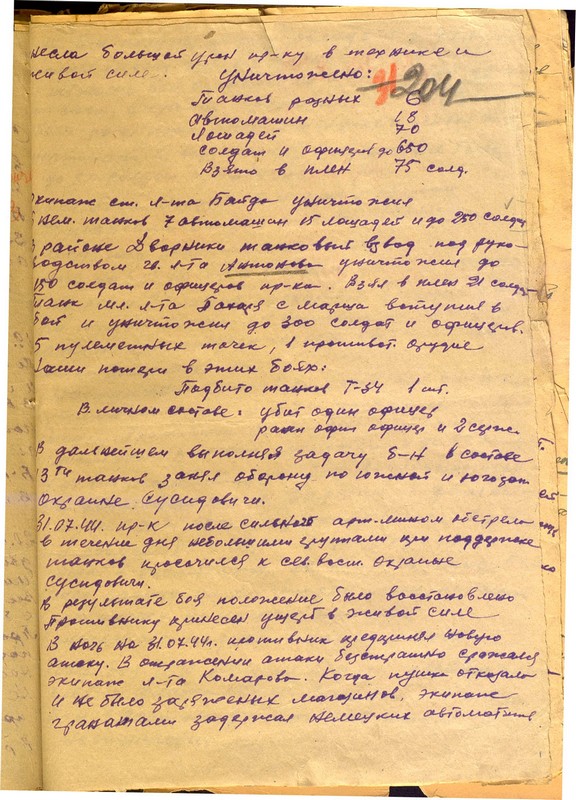 несла большой урон пр-ку в технике и
живой силе. уничтожено:
204
Танков разных 6
Автомашин 18
Лошадей 70
солдат и офицеров до 650
Взято в плен 75 солд.
Экипаж ст. л-та Байда уничтожил
нем. танков 7 автомашин 15 лошадей и до 250 солдат
В районе Дворники танковый взвод под руко-
водством гв. л-та Антонова уничтожил до
150 солдат и офицеров пр-ка. Взял в плен 21 солдат
Танк мл. л-та с марша вступил в
бой и уничтожил до 300 солдат и офицеров.
5 пулеметных точек, 1 противот. орудие
Наши потери в этих боях:
Подбито танков Т-34 1 шт.
В личном составе: убит один офицер
ранен один офицер и 2 серж.
В дальнейшем выполняя задачу б-н в составе
3ти танков занял оборону по южной и югозап.
окраине Сусидовичи.
31.07.44г. пр-к после сильного арт.-мином. обстрела
в течение дня небольшими группами при поддержке
танков просочился к сев. вост. окраине
Сусидовичи.
В результате боя положение было восстановлено
Противнику принесен ущерб в живой силе
В ночь на 31.07.44г. противник предпринял новую
атаку. В отражении атаки безотрашно сражался
экипаж л-та Комарова. Когда пушки отказали
и не было заряженых магазинов, экипаж
гранатами задержал немецких автоматчиков